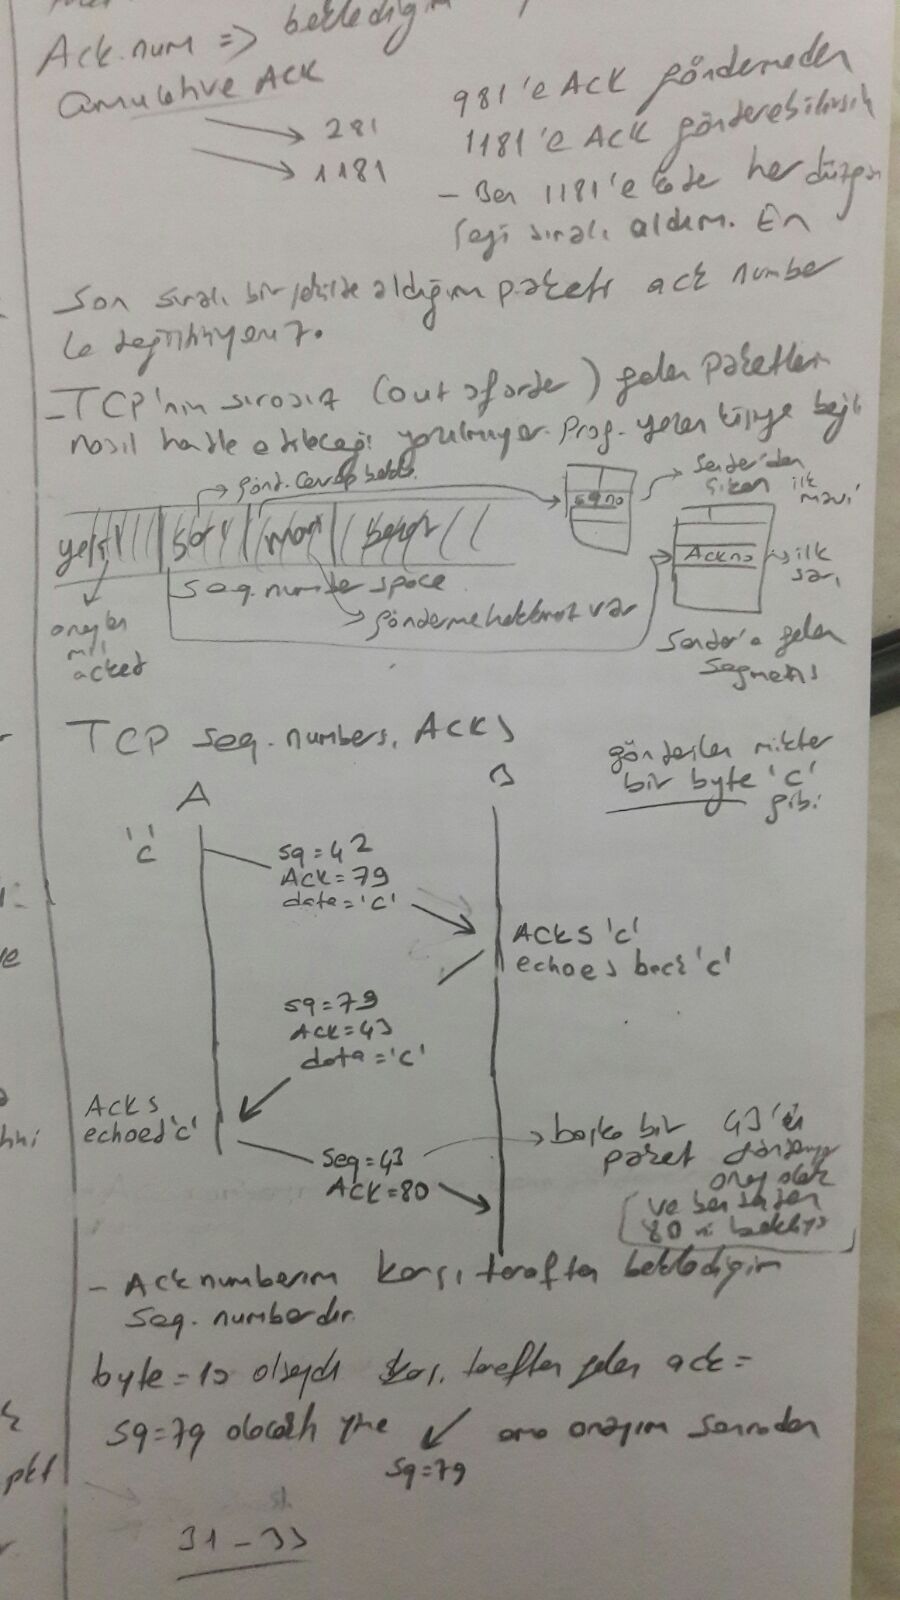 Ack.num => beklediğim
Cumulative ACK
281
1181
981'e ACK göndermeden
1181'e ACK gönderebilirsin
- Ben 1181'e kadar her düzgün
şeyi sıralı aldım. En
Son sıralı bir şekilde aldığım paketi ack number
le
- TCP'nin sırasız (out of order) gelen paketlerin
nasıl handle edileceği Prog. yazan kişiye bağlı
gönd. cevap bekle.
yeşil sarı mavi beyaz
Seq. number space
onaylan
mış
acked
gönderme hakkımız var
sqno
Sender'dan
çıkan ilk
mavi
Ackno
ilk
sarı
Sender'a gelen
segment
TCP seq. numbers, ACKs
gönderilen miktar
bir byte 'c'
gibi
A
B
'c'
sq=42
ACK=79
data='c'
ACKS 'c'
echoes back 'c'
sq=79
ACK=43
data='c'
ACKs
echoed 'c'
Seq=43
ACK=80
başka bir 43'ü
paket
onay olarak
ve ben senden
80 i bekliyo
- Ack numberım karşı taraftan beklediğim
Seq. numberdır.
byte=10 olsaydı karş. taraftan gelen ack=
sq=79 olacaktı yine ama onayım sonradan
sq=79
31-33